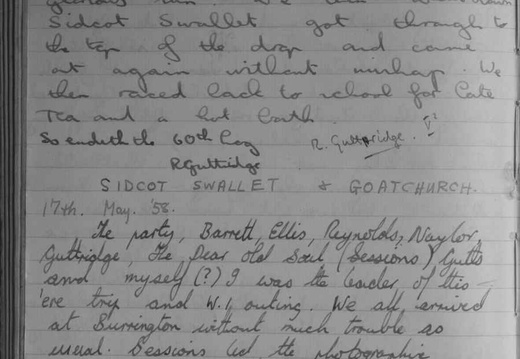 Sidcot Swallet got through to
the top of the drop and came
out again without mishap. We
then raced back to school for Late
Tea and a hot bath.
So endeth the 60th log R. Guttridge.
RGuttridge
SIDCOT SWALLET & GOATCHURCH.
17th. May. '58.
The party, Barrett, Ellis, Reynolds, Naylor,
Guttridge, The Dear old Soul (Sessions) Gutts
and myself (?) I was the leader of this
'ere trip and W.1. outing. We all arrived
at Burrington without much trouble as
usual. Sessions led the photographic